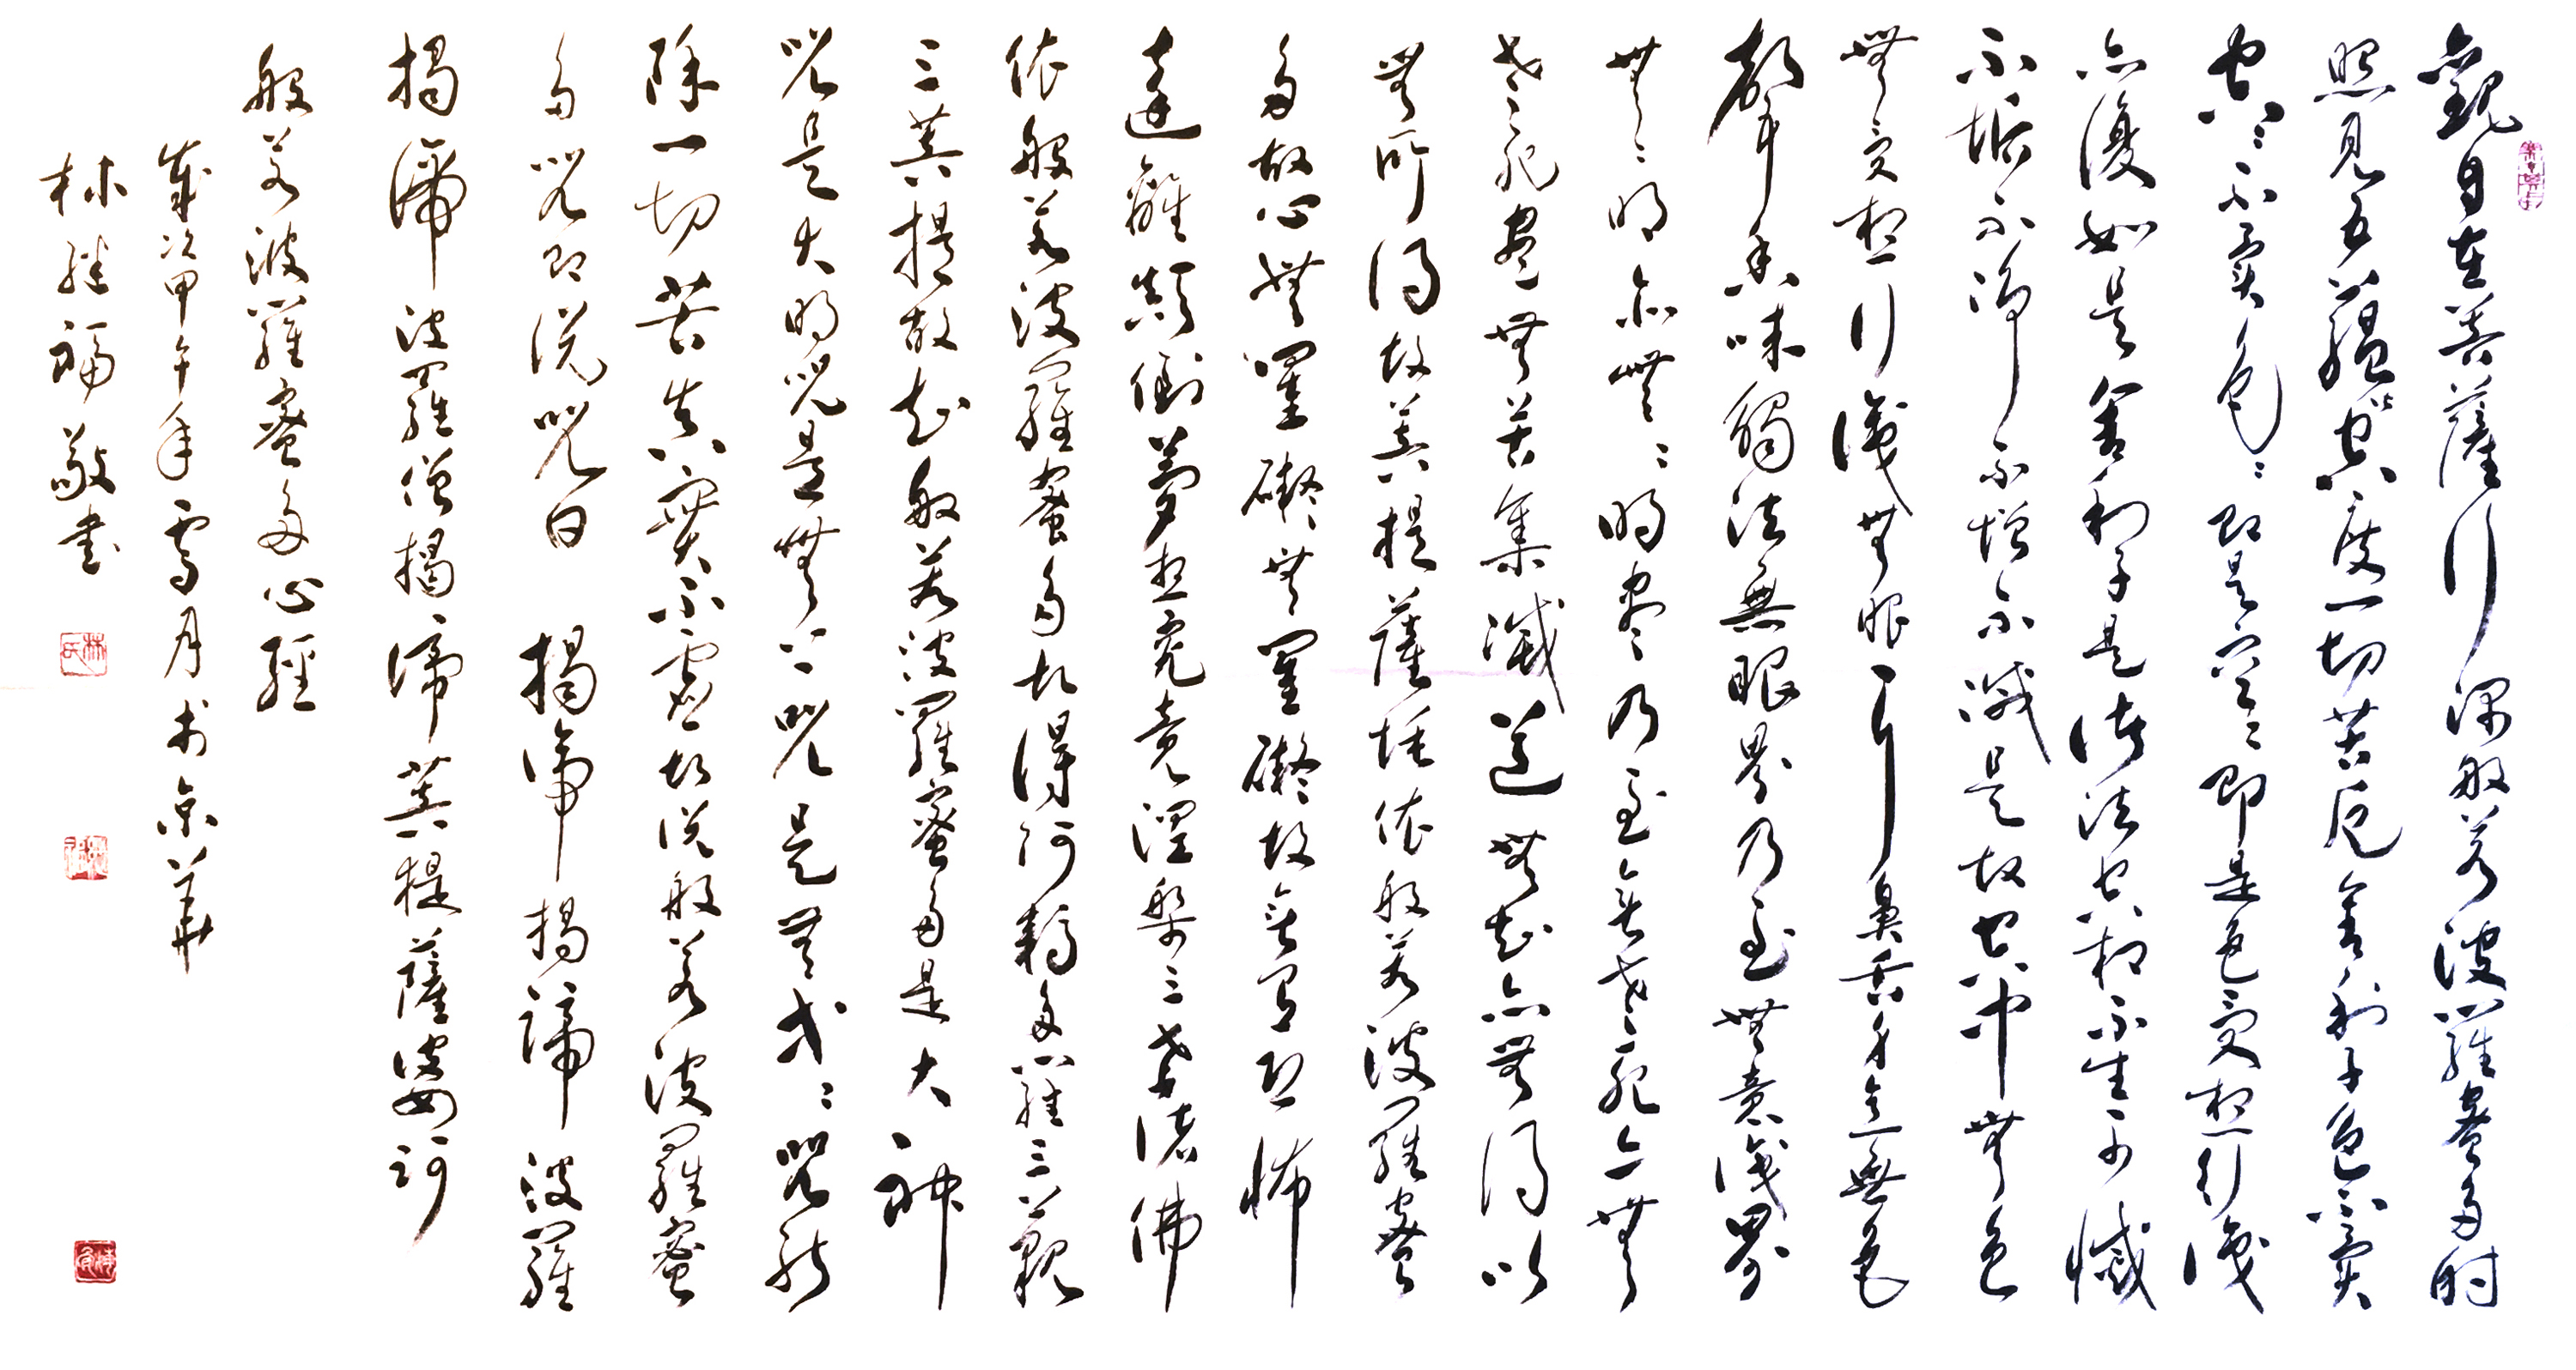 觀自在菩薩行深般若波羅蜜多時
照見五蘊皆空度一切苦厄舍利子色不異
空〻不異色〻即是空〻即是色受想行識
亦復如是舍利子是諸法空相不生不滅
不垢不淨不增不減是故空中無色
無受想行識無眼耳鼻舌身意無色
聲香味觸法無眼界乃至無意識界
無〻明亦無〻明盡乃至無老死亦無
老死盡無苦集滅道無智亦無得以
無所得故菩提薩埵依般若波羅蜜
多故心無罣礙無罣礙故無有恐怖
遠離顛倒夢想究竟涅槃三世諸佛
依般若波羅蜜多故得阿耨多羅三藐
三菩提故知般若波羅蜜多是大神
咒是大明咒是無上咒是無等〻咒能
除一切苦真實不虛故說般若波羅蜜
多咒即說咒曰 揭諦揭諦波羅
揭諦波羅僧揭諦菩提薩婆訶
般若波羅蜜多心經
歲次甲午年雪月於京華
林繼福敬書
林氏